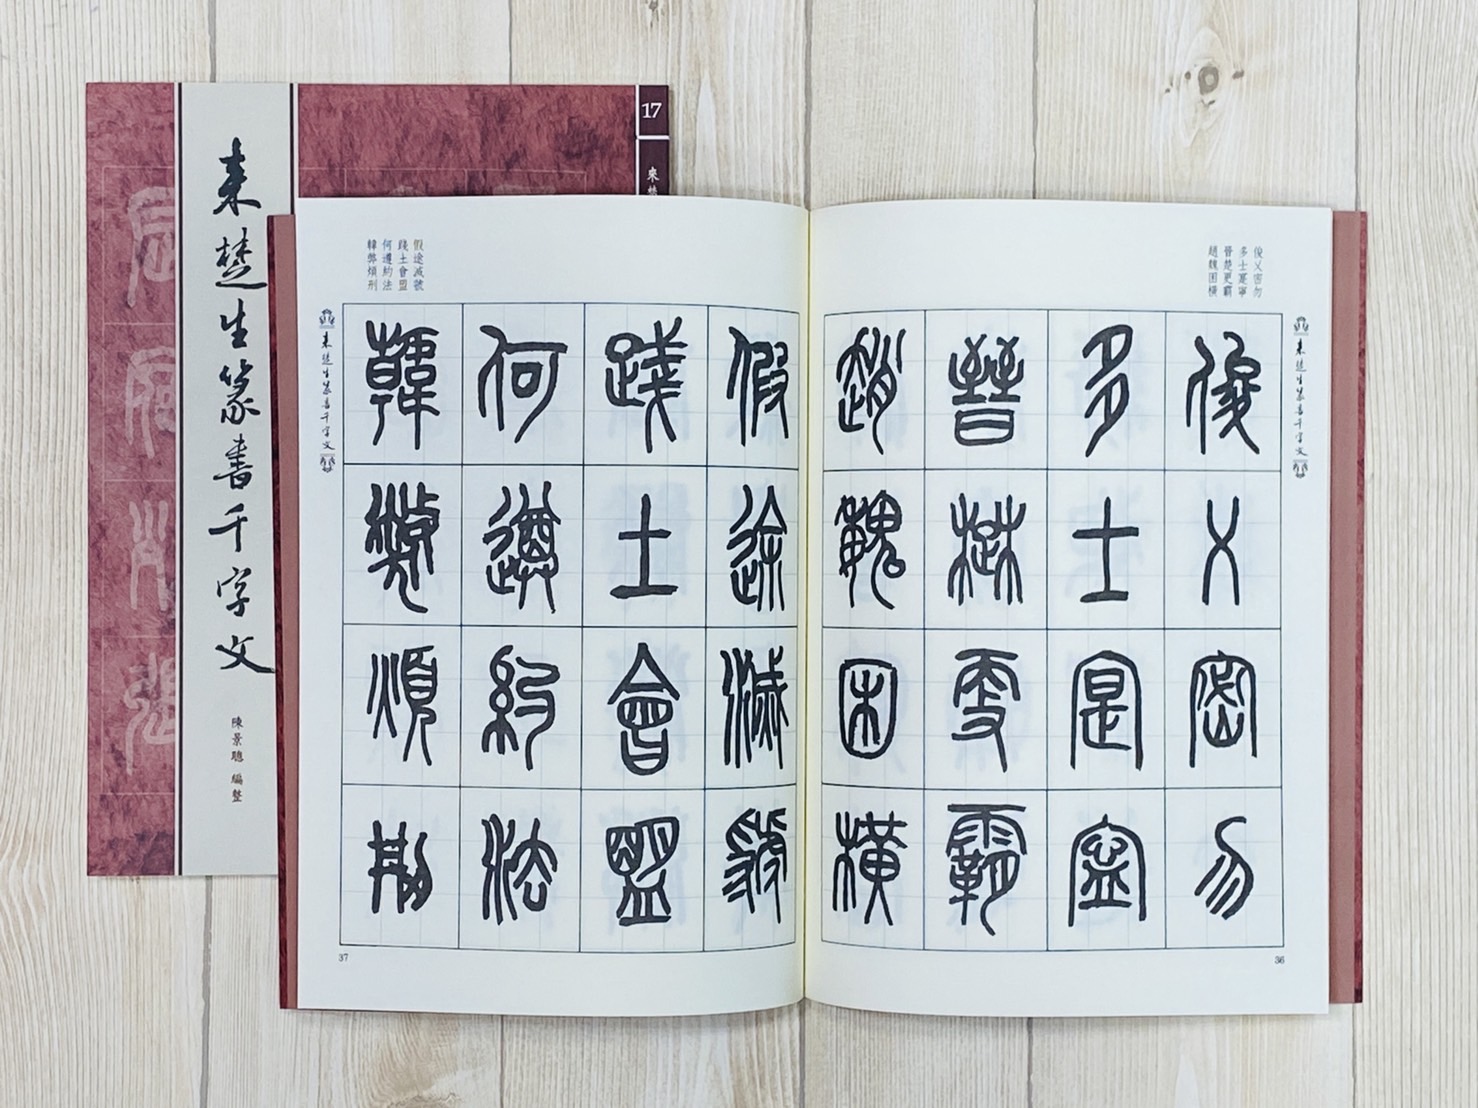 来楚生篆書千字文
陳景聰 編整
17
來楚
俊乂密勿
多士寔寧
晉楚更霸
趙魏困橫
来楚生篆書千字文
俊乂密勿
多士寔寧
晉楚更霸
趙魏困橫
36
假途滅虢
踐土會盟
何遵約法
韓弊煩刑
假途滅虢
踐土會盟
何遵約法
韓弊煩刑
来楚生篆書千字文
37